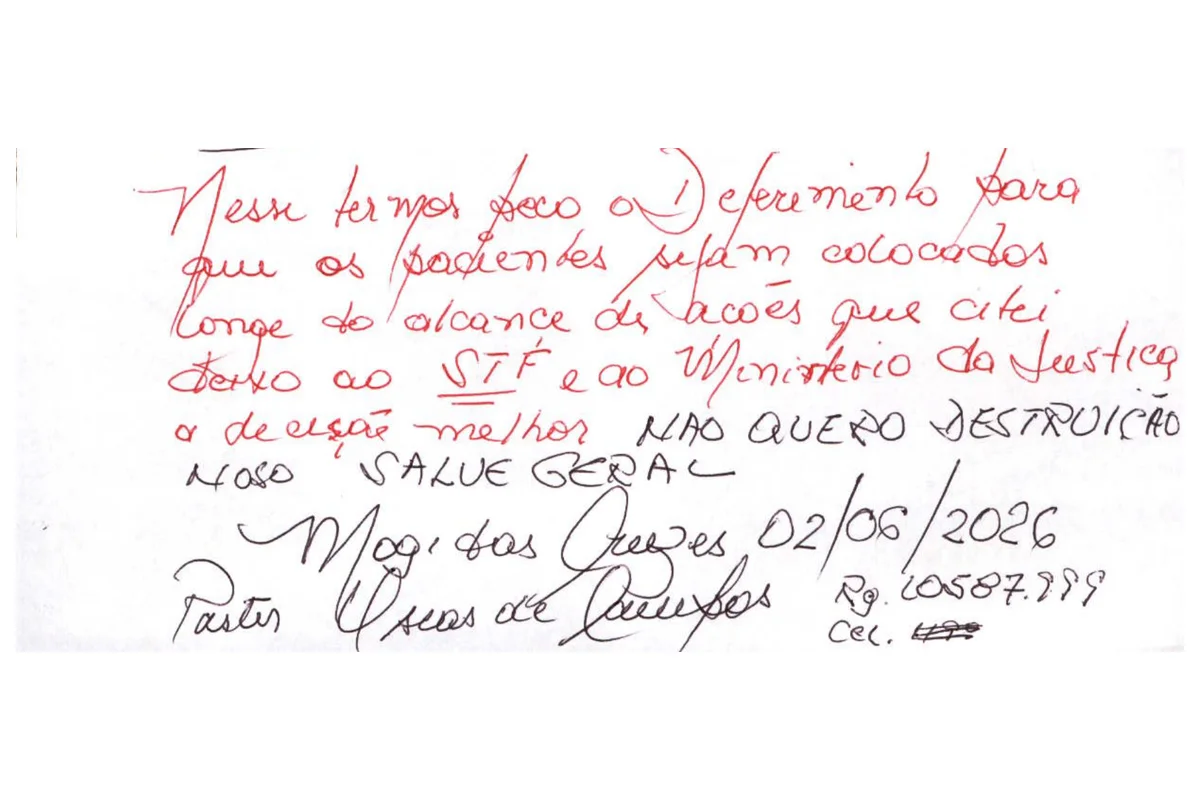 Nesse termos peco o Deferimento para
que os pacientes sejam colocados
longe do alcance de acoēs que citei
deixo ao STF e ao Ministério da Justiça
a decisão melhor NÃO QUERO DESTRUIÇÃO
NOSO SALVE GERAL
Mogi das Cruzes 02/06/2026
Pastor Oscas de Campos Rg. 10587.999
Cel.